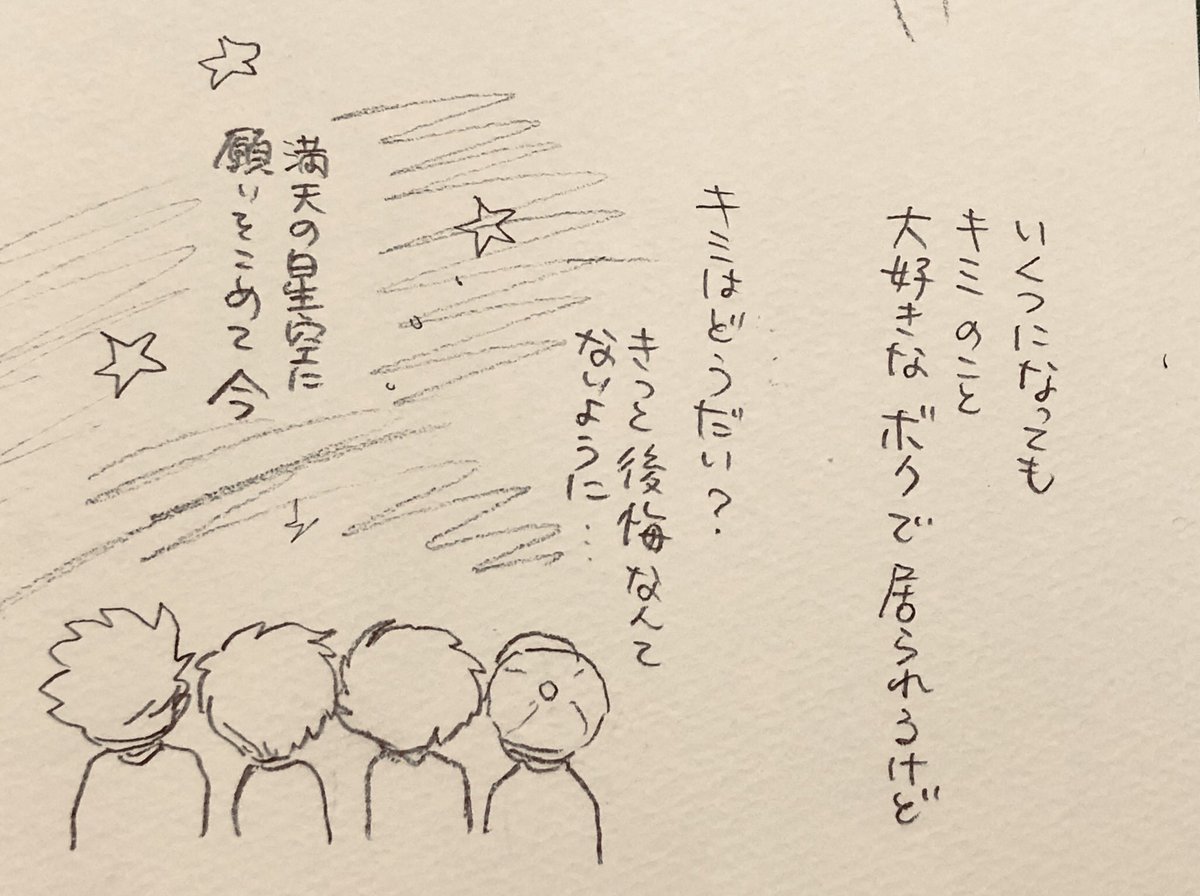 いくつになっても
キミのこと
大好きなボクで居られるけど
キミはどうだい？
きっと後悔なんて
ないように…
満天の星空に
願いをこめて今